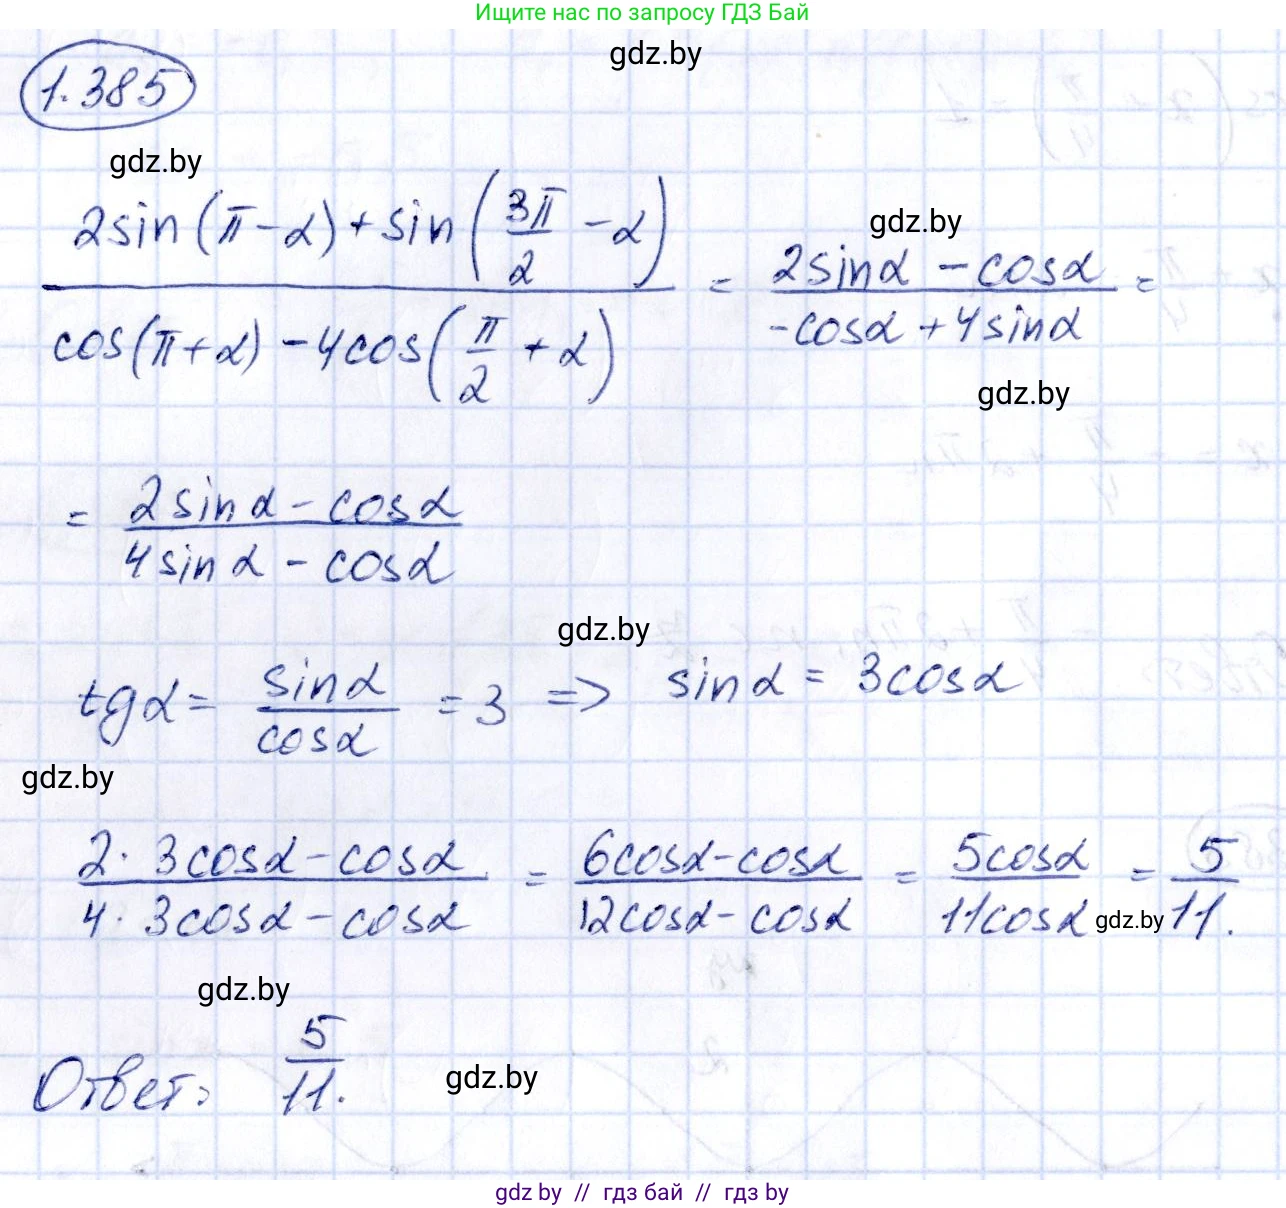 Ищите нас по запросу ГДЗ Бай
gdz.by
1.385
gdz.by
2sin(π-α)+sin(3π/2 -α) / cos(π+α)-4cos(π/2 +α) = 2sinα-cosα / -cosα+4sinα =
gdz.by
gdz.by
= 2sinα-cosα / 4sinα-cosα
gdz.by
tgα= sinα/cosα =3 => sinα = 3cosα
gdz.by
2·3cosα-cosα / 4·3cosα-cosα = 6cosα-cosα / 12cosα-cosα = 5cosα / 11cosα = 5/11.
gdz.by
gdz.by
Ответ: 5/11.
gdz.by
gdz by // гдз бай // гдз by